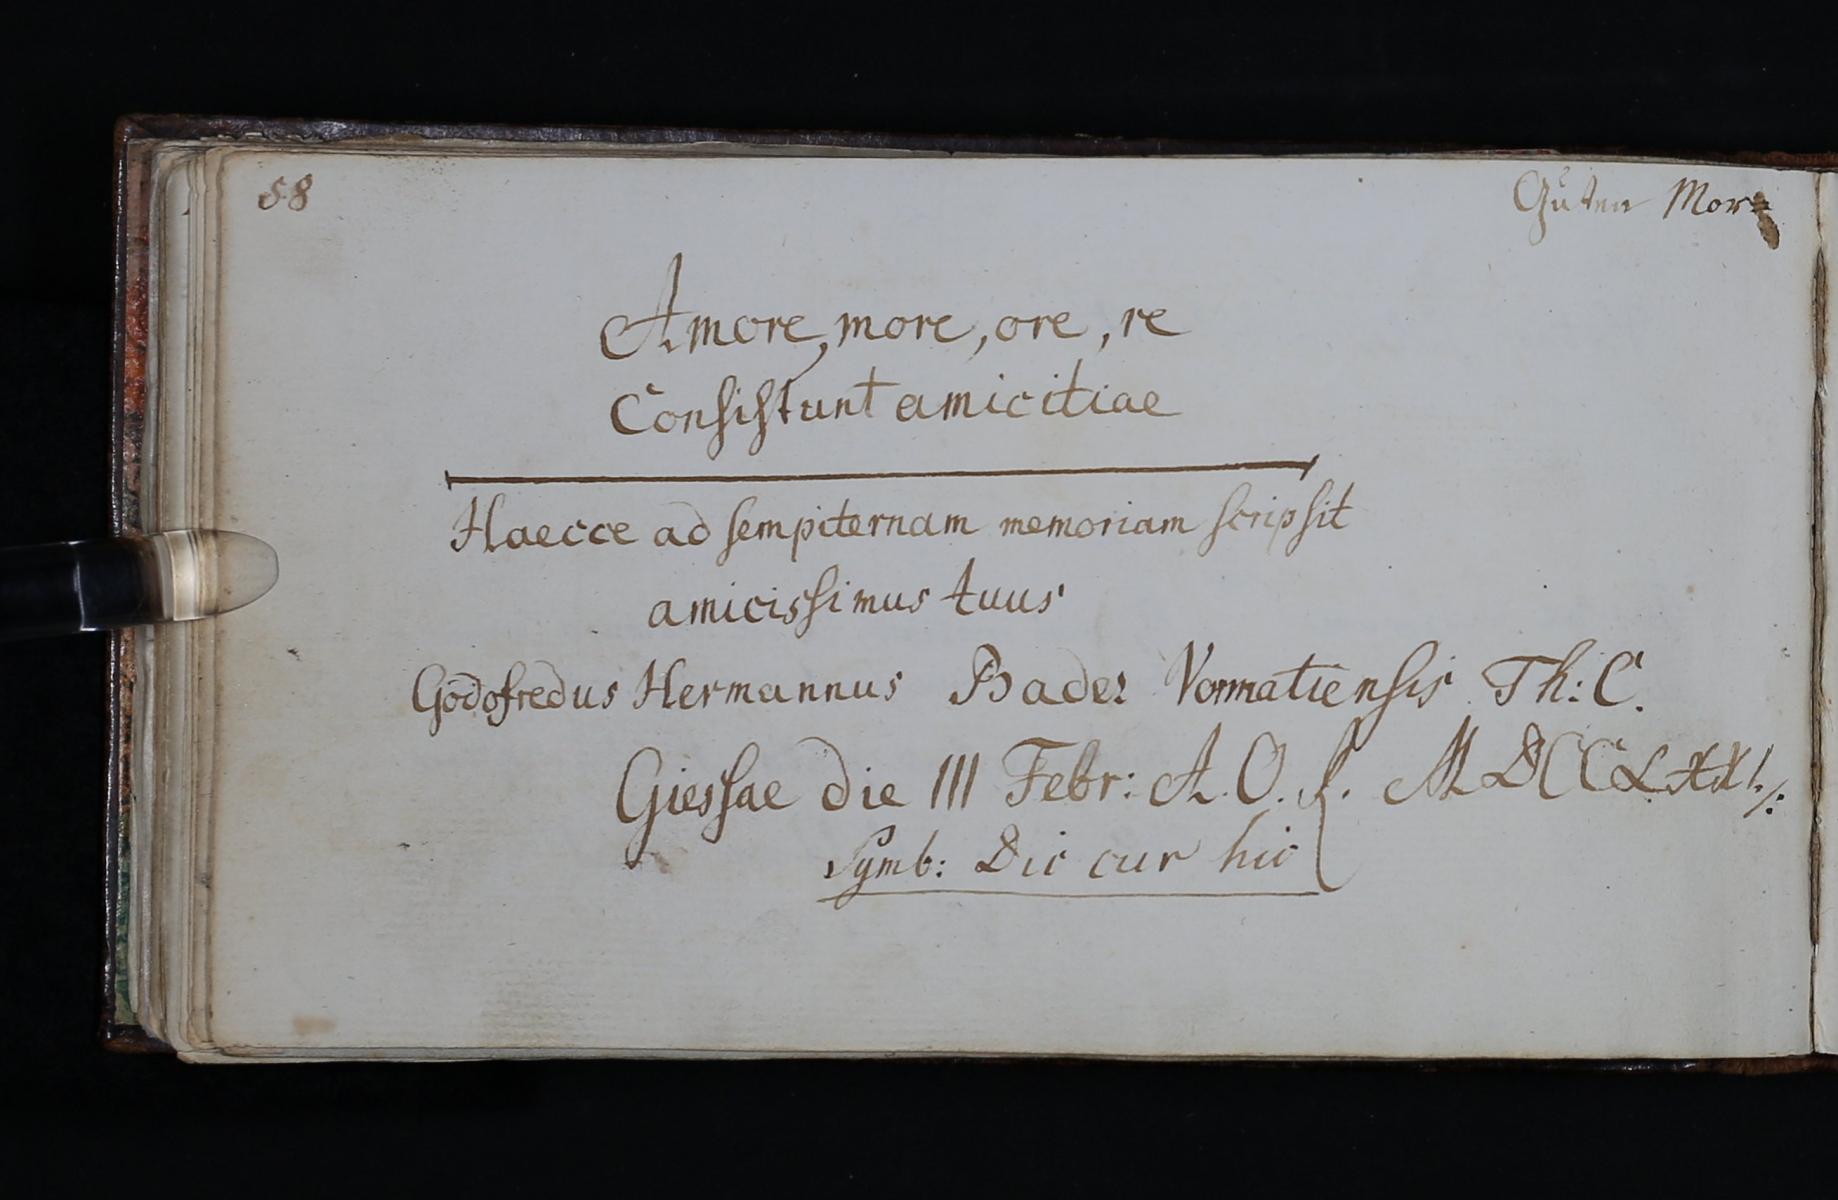 58
Guten Mor=
Amore, more, ore, re
Consistunt amicitiae
Haecce ad sempiternam memoriam scripsit
amicissimus tuus
Godofredus Hermannus Bader Vormatiensis Th: C.
Giessae die III Febr: A. O. S. MDCCLXXI
Symb: Dic cur hic